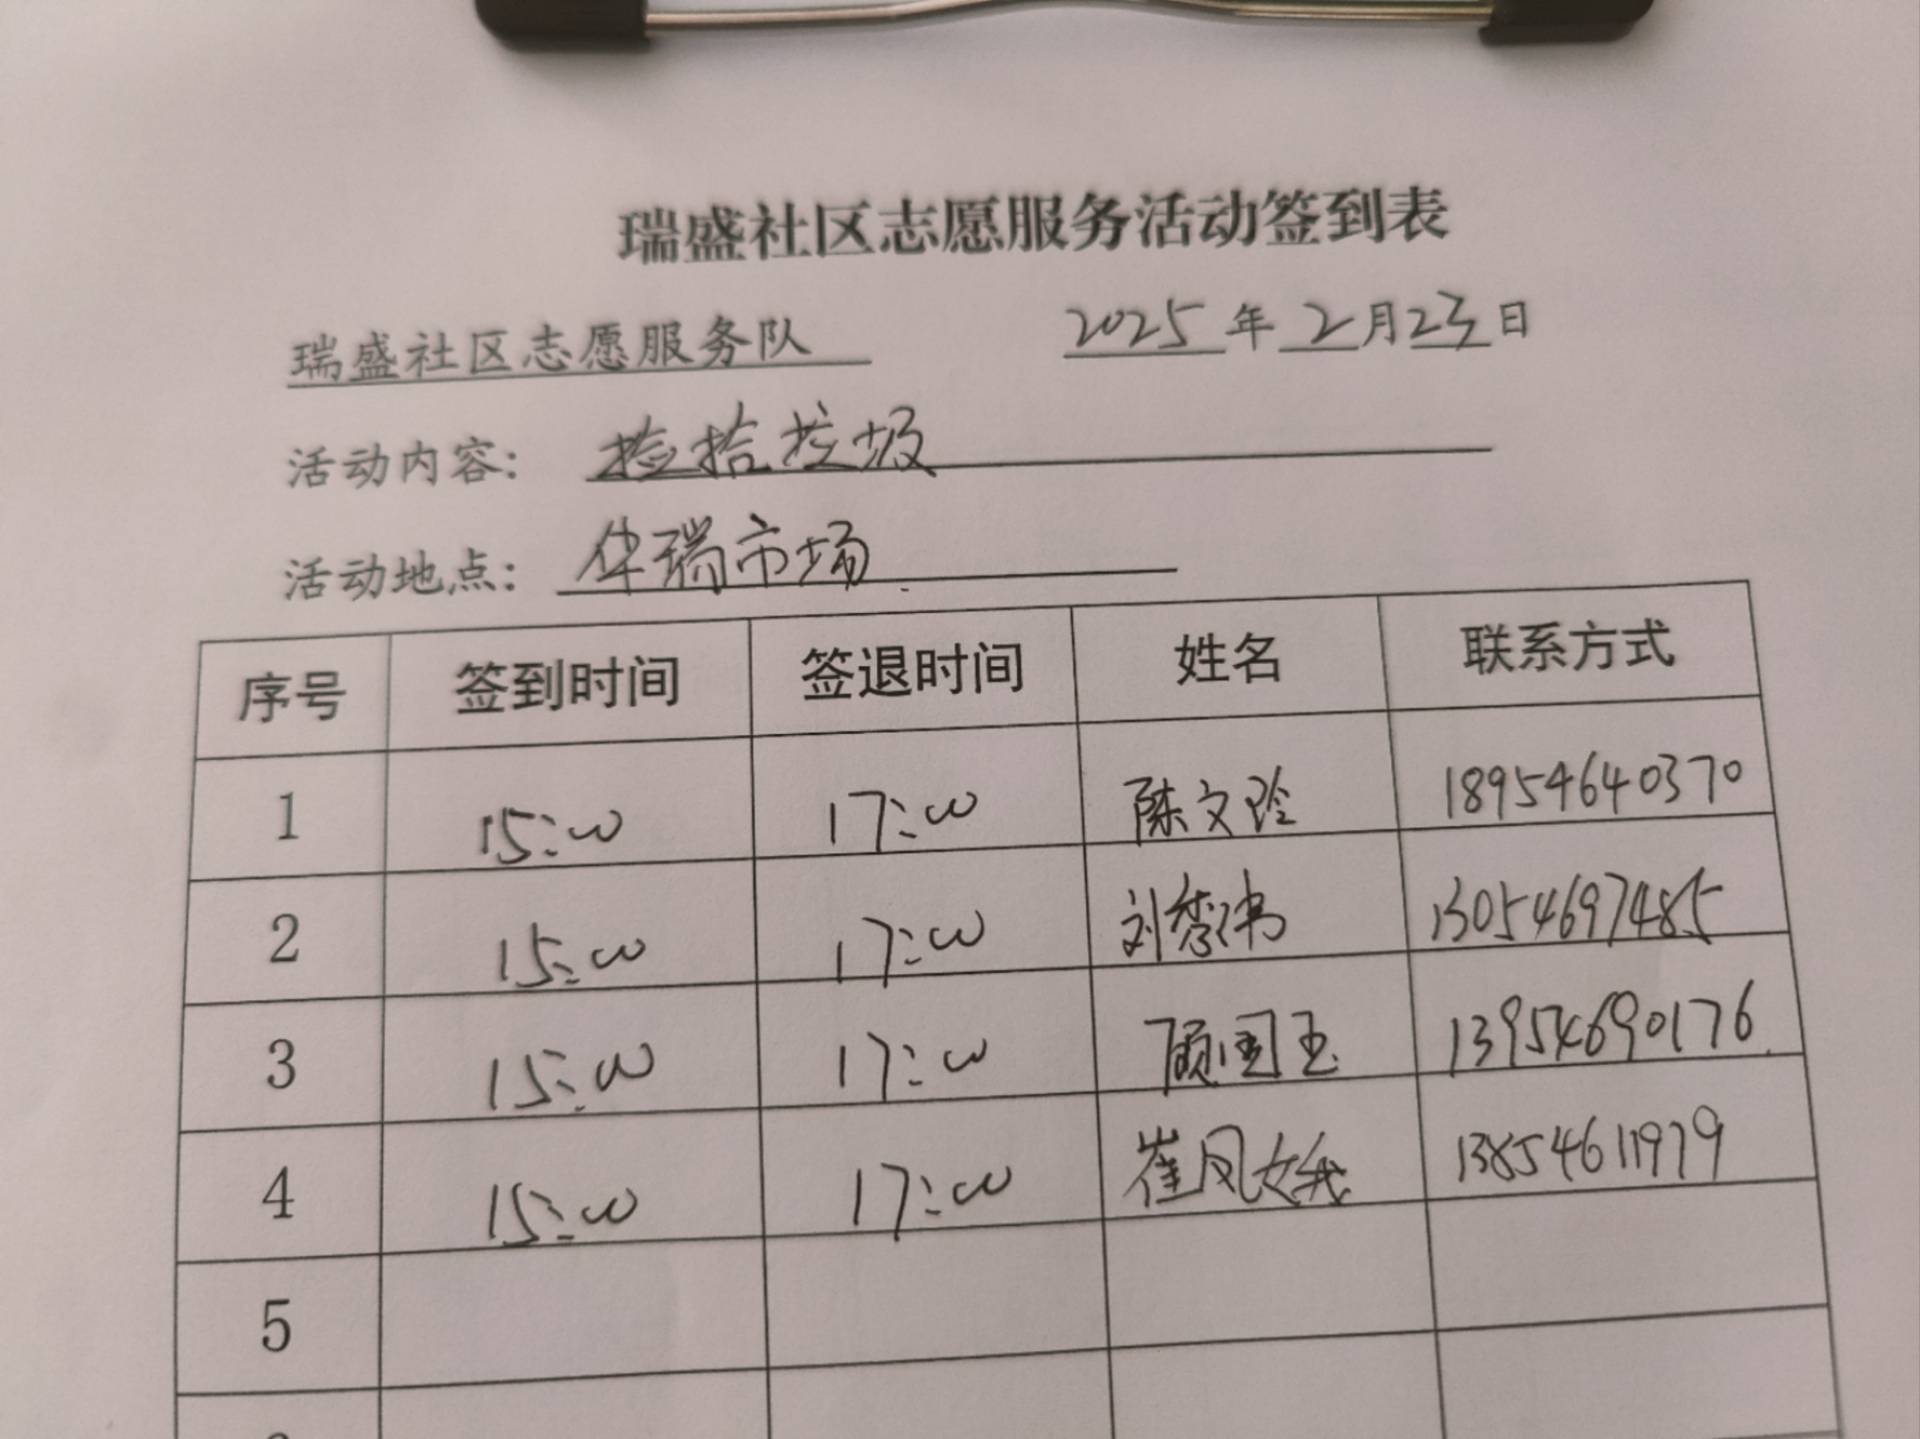 瑞盛社区志愿服务活动签到表
瑞盛社区志愿服务队 2025年2月23日
活动内容: 捡拾垃圾
活动地点: 华瑞市场
序号 签到时间 签退时间 姓名 联系方式
1 15:00 17:00 陈文玲 18954640370
2 15:00 17:00 刘秀伟 13054697485
3 15:00 17:00 顾国玉 13954690176
4 15:00 17:00 崔凤娥 13854611979
5